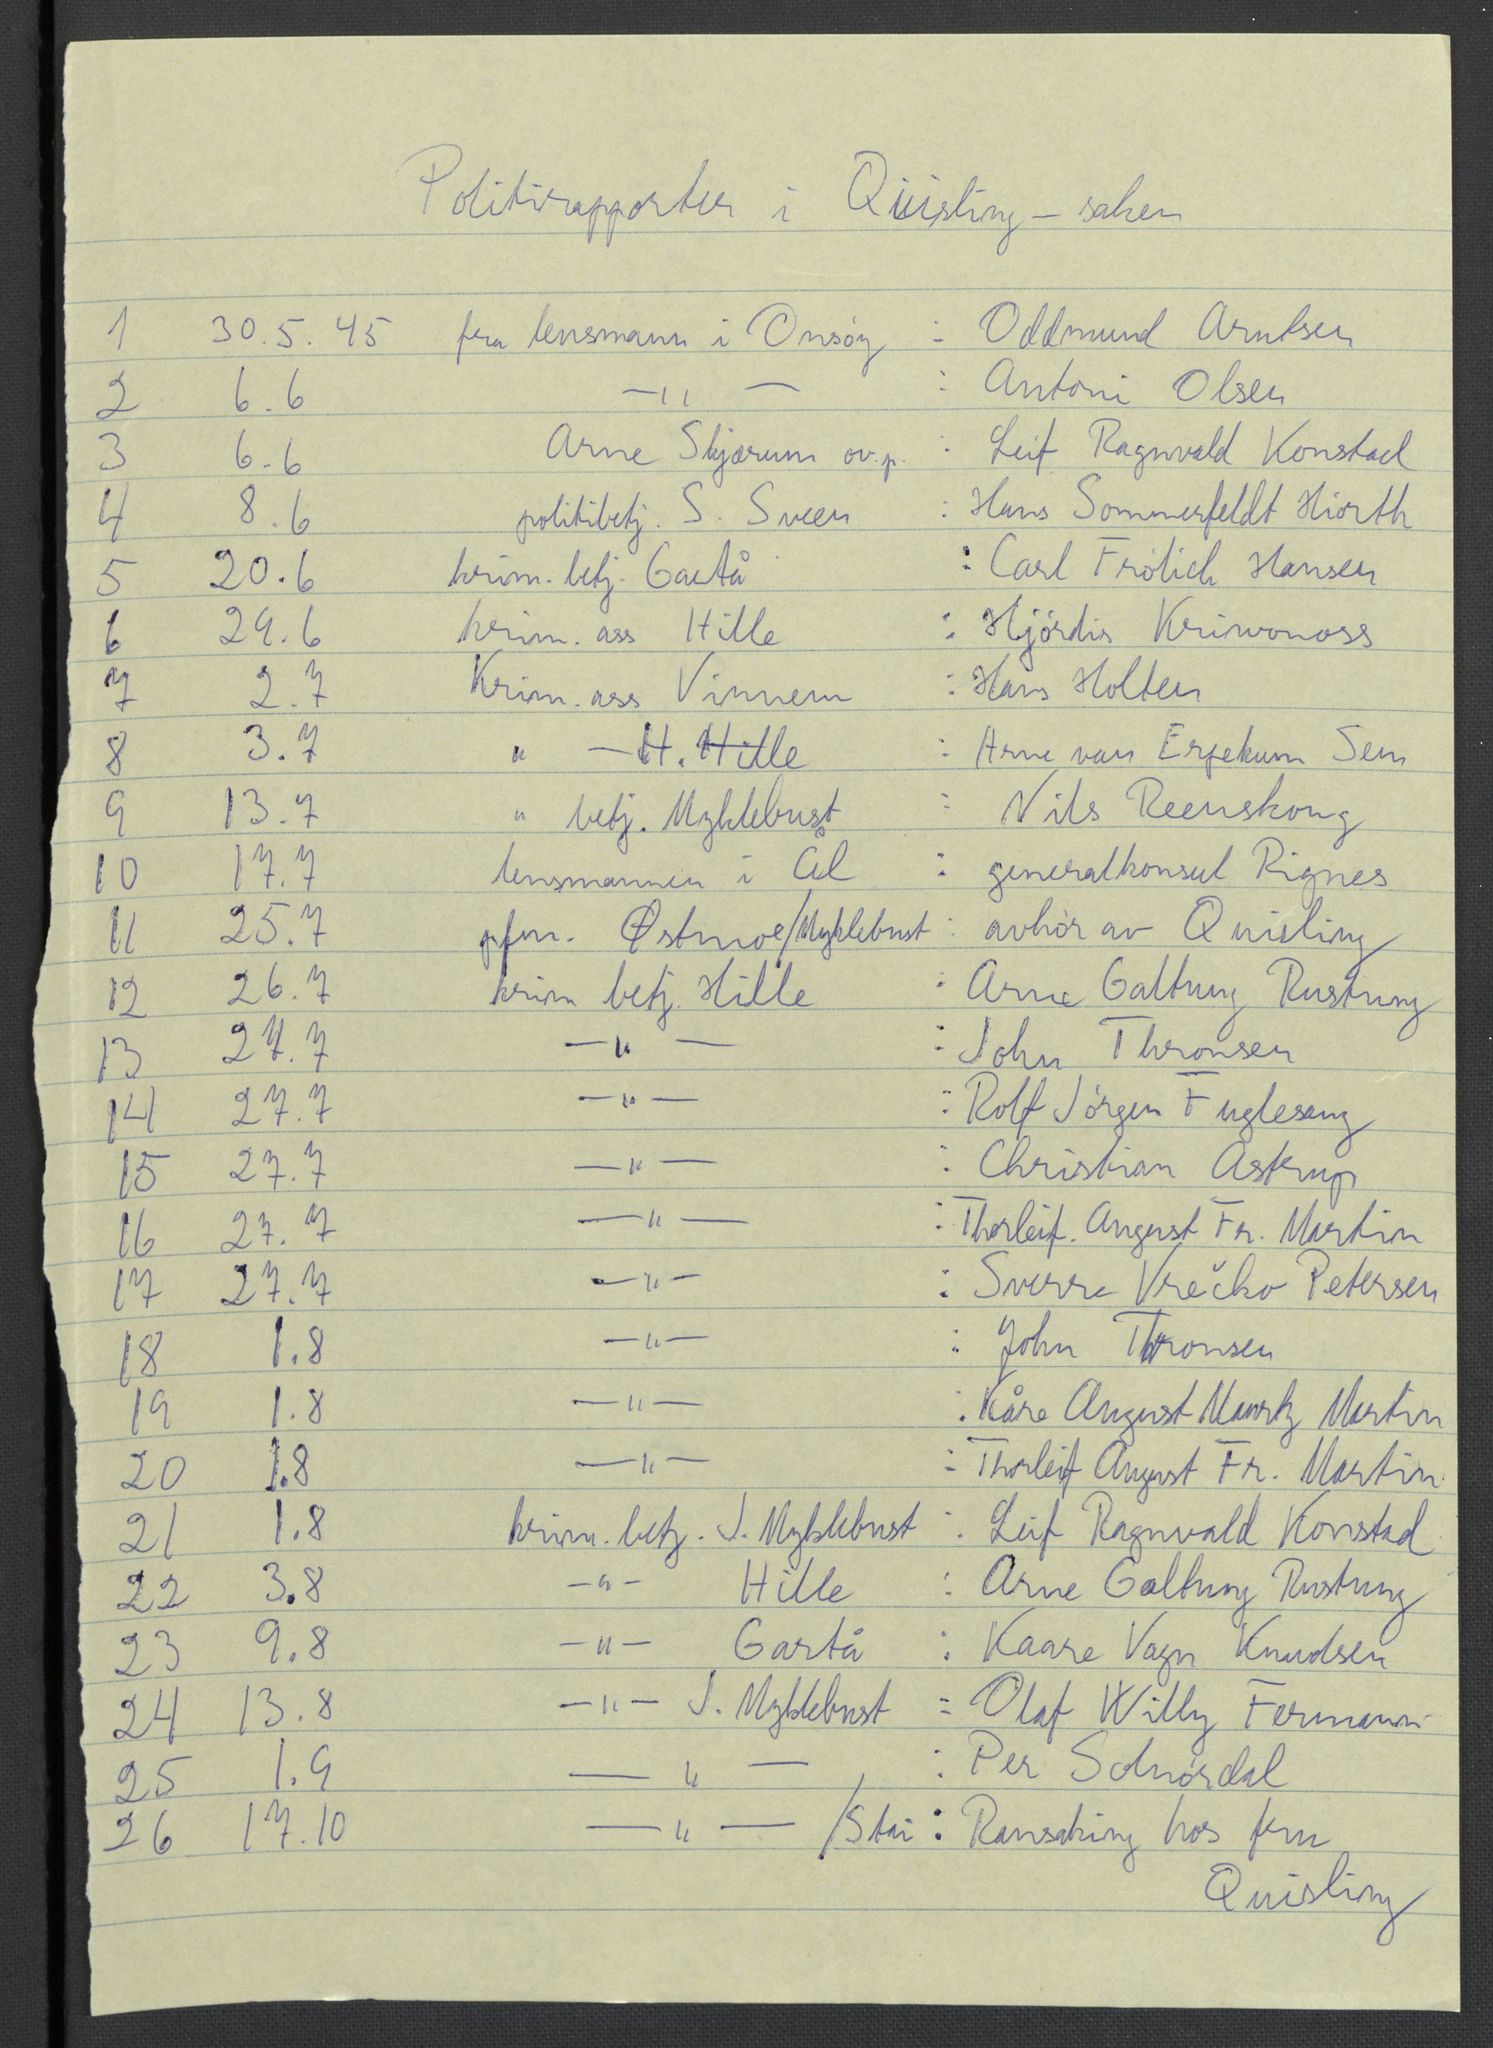 Politirapporter i Quisling-saken
1 30.5.45 fra lensmann i Onsöy : Oddmund Arntsen
2 6.6 —"— : Antoni Olsen
3 6.6 Arne Skjærum ov.p. : Leif Ragnvald Konstad
4 8.6 politibetj. S. Sveen : Hans Sommerfeldt Hiorth
5 20.6 krim. betj. Gartå : Carl Frölich Hansen
6 29.6 krim. ass Hille : Hjördis Kriwonoss
7 2.7 Krim. ass Vinnem : Hans Holten
8 3.7 " — H. Hille : Arne van Erpekum Sem
9 13.7 " betj. Myklebust : Nils Reenskoug
10 17.7 lensmannen i Ål : generalkonsul Rignes
11 25.7 pfm. Østmoe/Myklebust : avhör av Quisling
12 26.7 krim betj. Hille : Arne Galtung Rustung
13 27.7 —"— : John Thronsen
14 27.7 —"— : Rolf Jörgen Fuglesang
15 27.7 —"— : Christian Astrup
16 27.7 —"— : Thorleif. August Fr. Martin
17 27.7 —"— : Sverre Vrečko Petersen
18 1.8 —"— : John Thronsen
19 1.8 —"— : Kåre August Mauritz Martin
20 1.8 —"— : Thorleif August Fr. Martin
21 1.8 krim. betj. J. Myklebust : Leif Ragnvald Konstad
22 3.8 —"— Hille : Arne Galtung Rustung
23 9.8 —"— Gartå : Kaare Vagn Knudsen
24 13.8 —"— J. Myklebust : Olaf Willy Fermann
25 1.9 —"— : Per Solnördal
26 17.10 —"— /Stai : Ransaking hos fru
Quisling